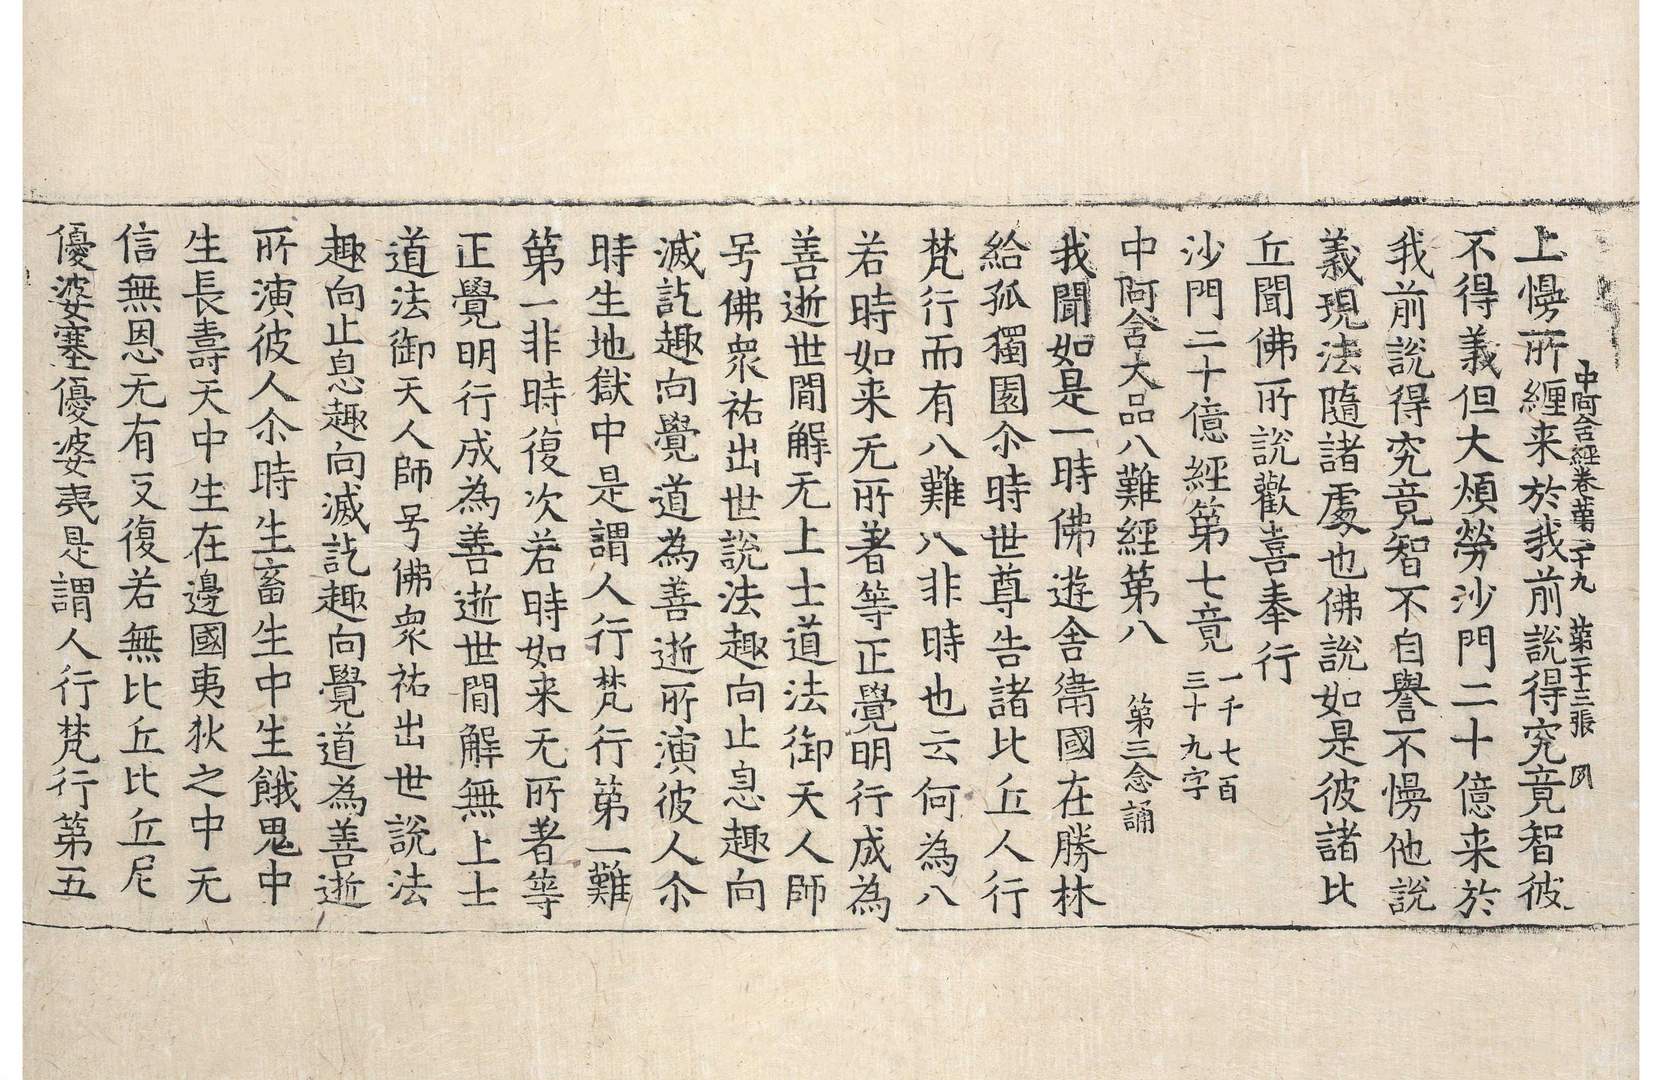 中阿含經卷苐二十九 苐二十三張
上慢所纏来於我前說得究竟智彼
不得義但大煩勞沙門二十億来於
我前說得究竟智不自譽不慢他說
義現法隨諸處也佛說如是彼諸比
丘聞佛所說歡喜奉行
沙門二十億經第七竟 一千七百三十九字
中阿含大品八難經第八 第三念誦
我聞如是一時佛遊舍衛國在勝林
給孤獨園尒時世尊告諸比丘人行
梵行而有八難八非時也云何為八
若時如来无所著等正覺明行成為
善逝世間解无上士道法御天人師
号佛衆祐出世說法趣向止息趣向
滅訖趣向覺道為善逝所演彼人尒
時生地獄中是謂人行梵行第一難
第一非時復次若時如来无所著等
正覺明行成為善逝世間解無上士
道法御天人師号佛衆祐出世說法
趣向止息趣向滅訖趣向覺道為善逝
所演彼人尒時生畜生中生餓鬼中
生長壽天中生在邊國夷狄之中无
信無恩无有反復若無比丘比丘尼
優婆塞優婆夷是謂人行梵行第五